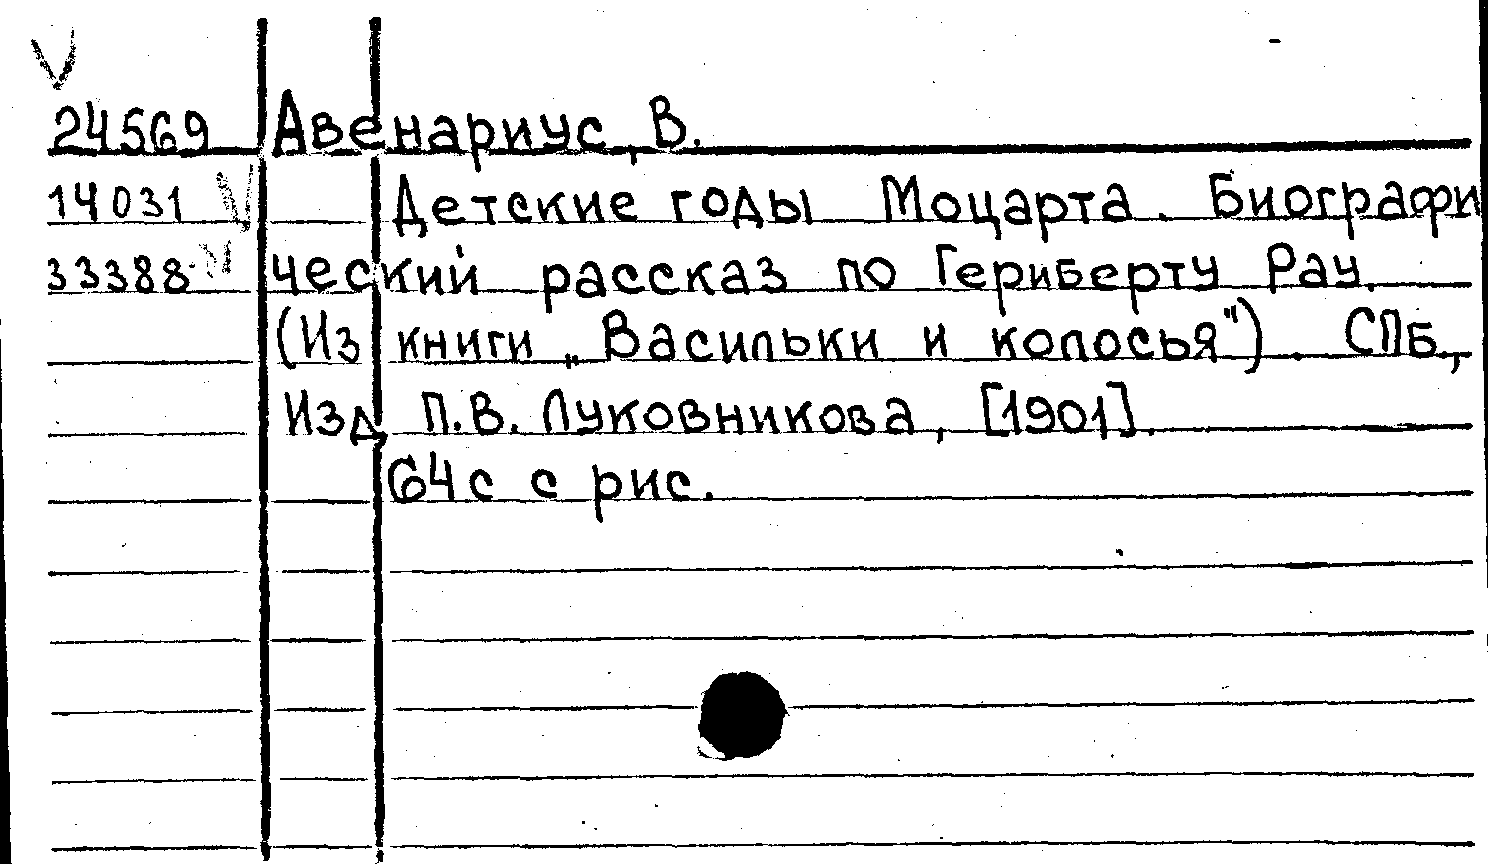 24569 Авенариус, В.
14031 Детские годы Моцарта. Биографи
33388 ческий рассказ по Гериберту Рау.
(Из книги „Васильки и колосья"). СПб.,
Изд. П.В. Луковникова, [1901].
64с с рис.